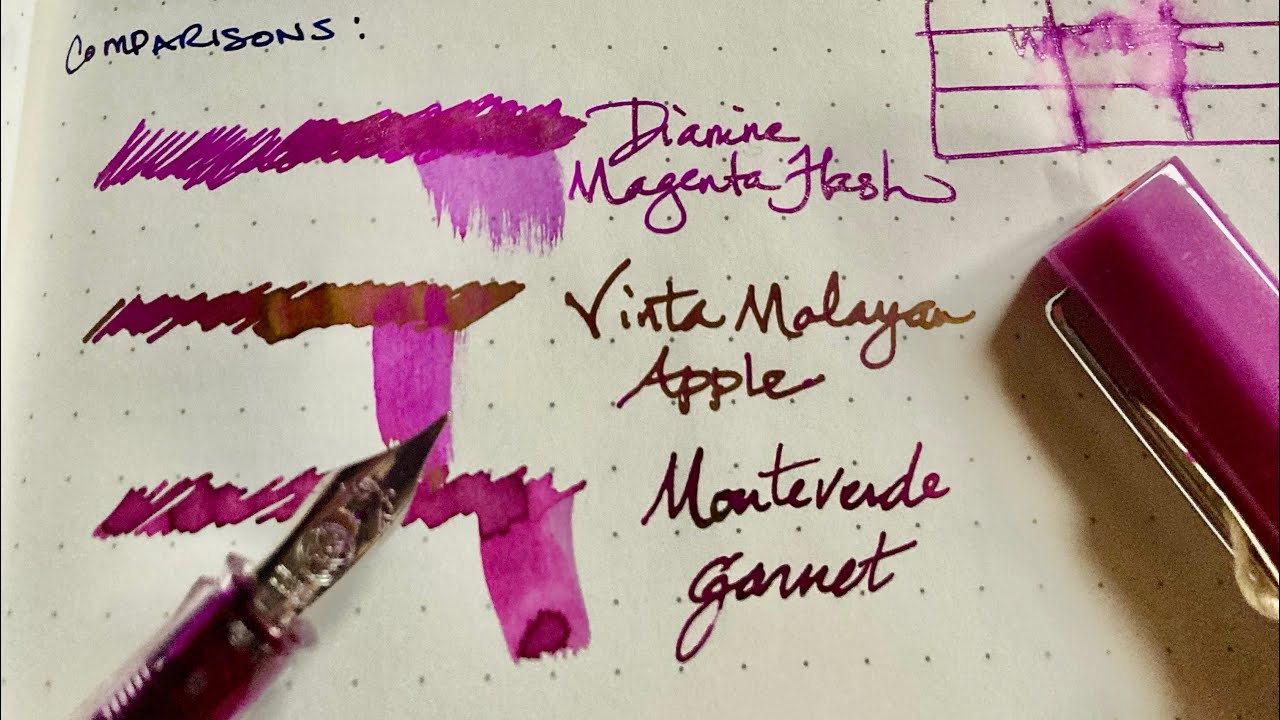 COMPARISONS:
Diamine
Magenta Flash
Vinta Malayan
Apple
Monteverde
Garnet